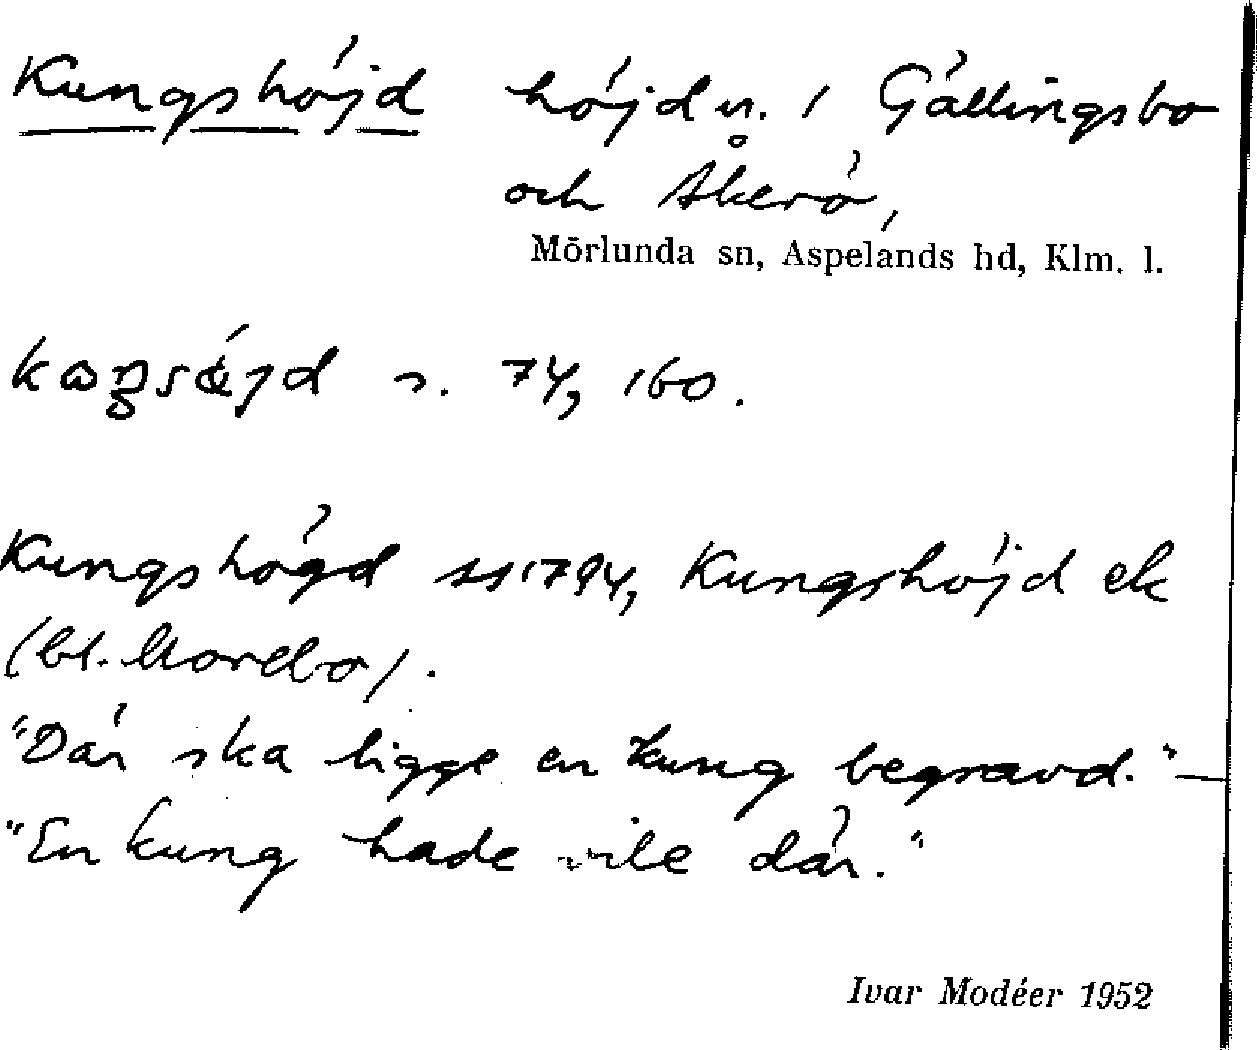 Kungshöjd höjd n. i Gällingsbo
och Åkerö,
Mörlunda sn, Aspelands hd, Klm. l.
s. 74, 160.
Kungshögd 1794, Kungshöjd ek
(bl. Morebo).
"Där ska ligge en kung begravd." —
"En kung hade vile där."
Ivar Modéer 1952